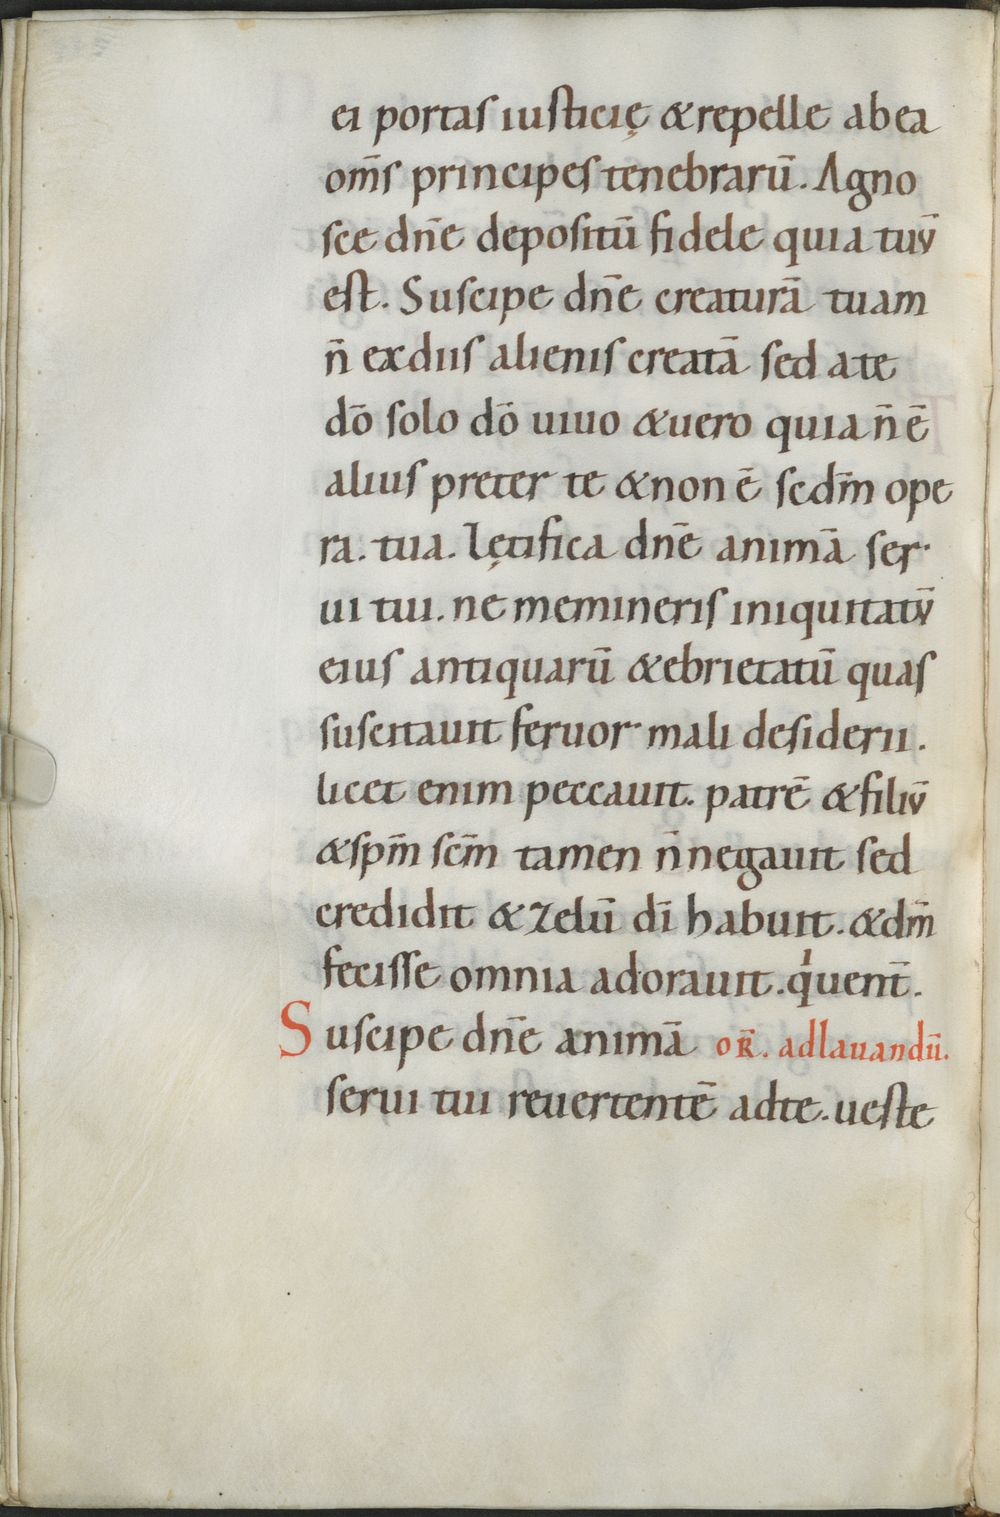 ei portas iusticię & repelle ab ea
om̄s principes tenebrarū. Agno
sce dn̄e depositū fidele quia tuū
est. Suscipe dn̄e creaturā tuam
n̄ ex diis alienis creatā sed a te
dō solo dō uiuo & uero quia n̄ ē
alius preter te & non ē scdm̄ ope
ra. tua. Lętifica dn̄e animā ser
ui tui. ne memineris iniquitatū
eius antiquarū & ebrietatū quas
suscitauit feruor mali desiderii.
licet enim peccauit. patrē & filiū
& spm̄ scm̄ tamen n̄ negauit sed
credidit & zelū dī habuit. & dm̄
fecisse omnia adorauit. q́uent̄.
Suscipe dn̄e animā or̄. ad lauandū.
serui tui reuertentē ad te. ueste